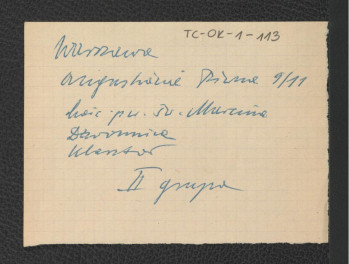 TC-OK-1-113
Warszawa
Augustianie Piwna 9/11
kośc. pw. św. Marcina
Dzwonnica
klasztor
II grupa